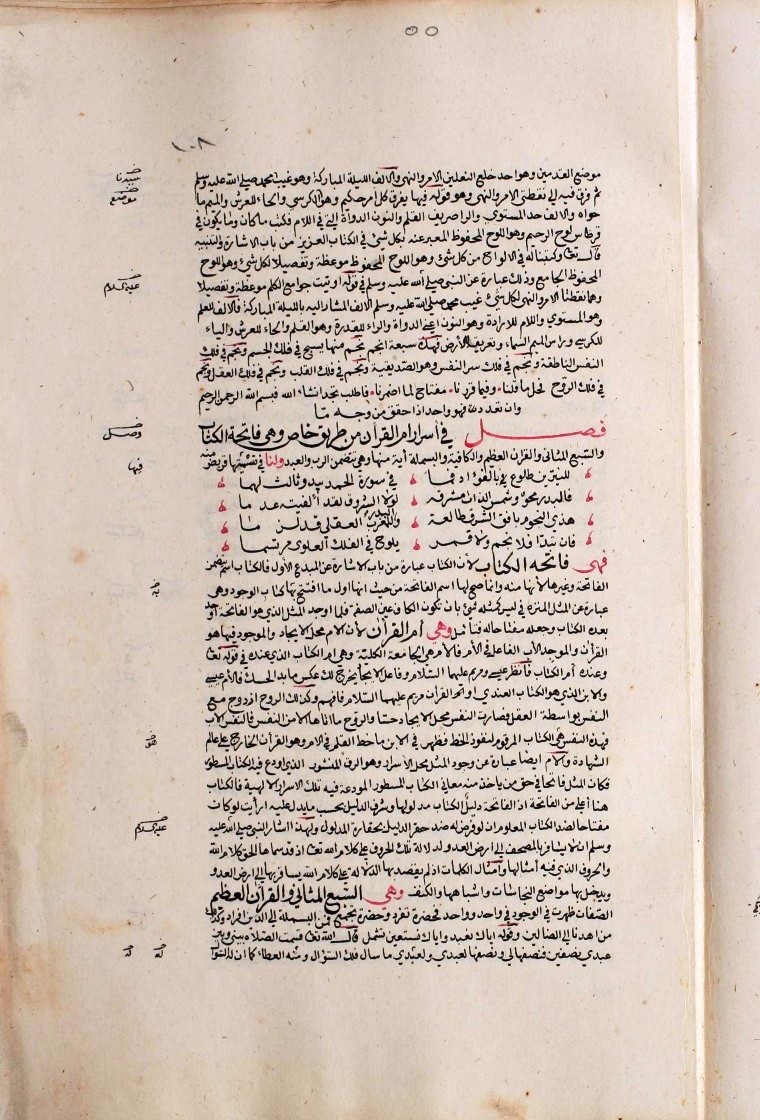 ٥٥
١٠٨
موضع القدمين وهو احد خلع النعلين الامر والنهى والالف الليلة المباركة وهو غيب محمد صلى الله عليه وسلم
ثم فرق فيه الى نقطتى الامر والنهى وهو قوله فيها يفرق كل امر حكيم وهو الكرسي والحاء للعرش والميم ما
حواه والالف حد المستوي والراء صريف القلم والنون الدواة التى فى اللام فكتب ما كان وما يكون فى
قرطاس لوح الرحيم وهو اللوح المحفوظ المعبر عنه بكل شئ فى الكتاب العزيز من باب الاشارة والتنبيه
قال تعالى وكتبنا له فى الالواح من كل شئ وهو اللوح المحفوظ موعظة وتفصيلا لكل شئ وهو اللوح
المحفوظ الجامع وذلك عبارة عن النبى صلى الله عليه وسلم فى قوله اوتيت جوامع الكلم موعظة وتفصيلا
وهما نقطتا الامر والنهى لكل شئ غيب محمد صلى الله عليه وسلم الالف المشار اليه بالليلة المباركة فالالف للعلم
وهو المستوي واللام للارادة وهو النون اعنى الدواة والراء للقدرة وهو القلم والحاء للعرش والياء
للكرسى وراس الميم السماء وتعريقه الارض فهذه سبعة انجم نجم منها يسبح فى فلك الجسم ونجم فى فلك
النفس الناطقة ونجم فى فلك سر النفس وهو الصديقية ونجم فى فلك القلب ونجم فى فلك العقل ونجم
فى فلك الروح فحل ما قفلنا وفيما قررنا مفتاح لما اضمرنا فاطلب تجد انشاء الله فبسم الله الرحمن الرحيم
وان تعدد فهو واحد اذا حقق من وجه ما
فصل فى اسرار ام القرآن من طريق خاص وهى فاتحة الكتاب
والسبع المثانى والقرآن العظيم والكافية والبسملة آية منها وهى تتضمن الرب والعبد ولنا فى تقسيمها قريض منه
للنيرين طلوع بالفؤاد فما فى سورة الحمد يبدو ثالث لهما
فالبدر محو وشمس الذات مشرقه لولا الشروق لقد الفيته عدما
هذى النجوم بافق الشرق طالعة والبدر للمغرب العقلى قد لزما
فان تبدا فلا نجم ولا قمر يلوح فى الفلك العلوى مرتسما
فهى فاتحة الكتاب لأن الكتاب عبارة من باب الاشارة عن المبدع الأول فالكتاب اسم يتضمن
الفاتحة وغيرها لأنها منه وانما صح لها اسم الفاتحة من حيث انها اول ما افتتح بها كتاب الوجود وهى
عبارة عن المثل المنزه فى ليس كمثله شئ بان تكون الكاف عين الصفة فلما اوجد المثل الذى هو الفاتحة اوجد
بعده الكتاب وجعله مفتاحا له فتأمل وهى أم القرآن لأن الام محل الايجاد والموجود فيها هو
القرآن والموجد الأب الفاعل فى الأم فالأم هى الجامعة الكلية وهى ام الكتاب الذى عنده فى قوله تعالى
وعنده ام الكتاب فانظر عيسى ومريم عليهما السلام وفاعل الايجاد يخرج لك عكس ما بدا لحسك فالأم عيسى
والابن الذى هو الكتاب العندى او القرآن مريم عليهما السلام فافهم وكذلك الروح ازدوج مع
النفس بواسطة العقل فصارت النفس محل الايجاد حسا والروح ما اتاها الا من النفس فالنفس الأب
فهذه النفس هى الكتاب المرقوم لنفوذ الخط فظهر فى الابن ما خط القلم فى الام وهو القرآن الخارج على عالم
الشهادة والام ايضا عبارة عن وجود المثل محل الأسرار وهو الرق المنشور الذى اودع فيه الكتاب المسطور
فكان المثل فاتحا فى حق من ياخذ منه معانى الكتاب المسطور المودعة فيه تلك الاسرار الالهية فالكتاب
هنا أعلى من الفاتحة اذ الفاتحة دليل الكتاب مدلولها وشرف الدليل بحسب ما يدل عليه ارأيت لو كان
مفتاحا لضد الكتاب المعلوم ان لو فرض له ضد حقر الدليل بحقارة المدلول ولهذا اشار النبى صلى الله عليه
وسلم ان لا يسافر بالمصحف الى ارض العدو لدلالة تلك الحروف على كلام الله تعالى اذ قد سماها الحق كلام الله
والحروف الذى فيه امثالها وامثال الكلمات اذا لم يقصد بها الدلالة على كلام الله يسافر بها الى ارض العدو
ويدخل بها مواضع النجاسات واشباهها والكنف وهى السبع المثانى والقرآن العظيم
الصفات ظهرت فى الوجود فى واحد وواحد فحضرة تفرد وحضرة تجمع فمن البسملة الى الدين افراد وكذلك
من اهدنا الى الضالين وقوله اياك نعبد واياك نستعين تشمل قال الله تعالى قسمت الصلاة بينى وبين
عبدي نصفين فنصفها لى ونصفها لعبدي ولعبدي ما سال فلك السؤال ومنه العطاء كما ان له السؤال
سيدنا
موضع
عليه السلام
وصل
فيها
به
هو
عليه السلام
له
له